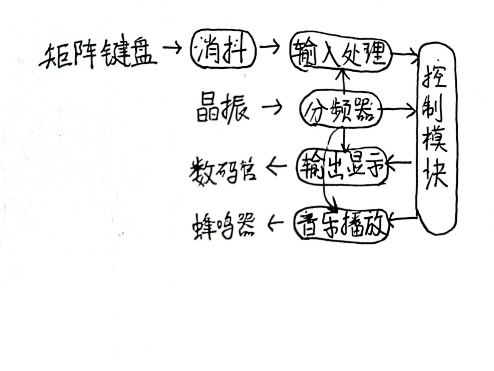 矩阵键盘 消抖 输入处理
晶振 分频器
数码管 输出显示
蜂鸣器 音乐播放
控制模块